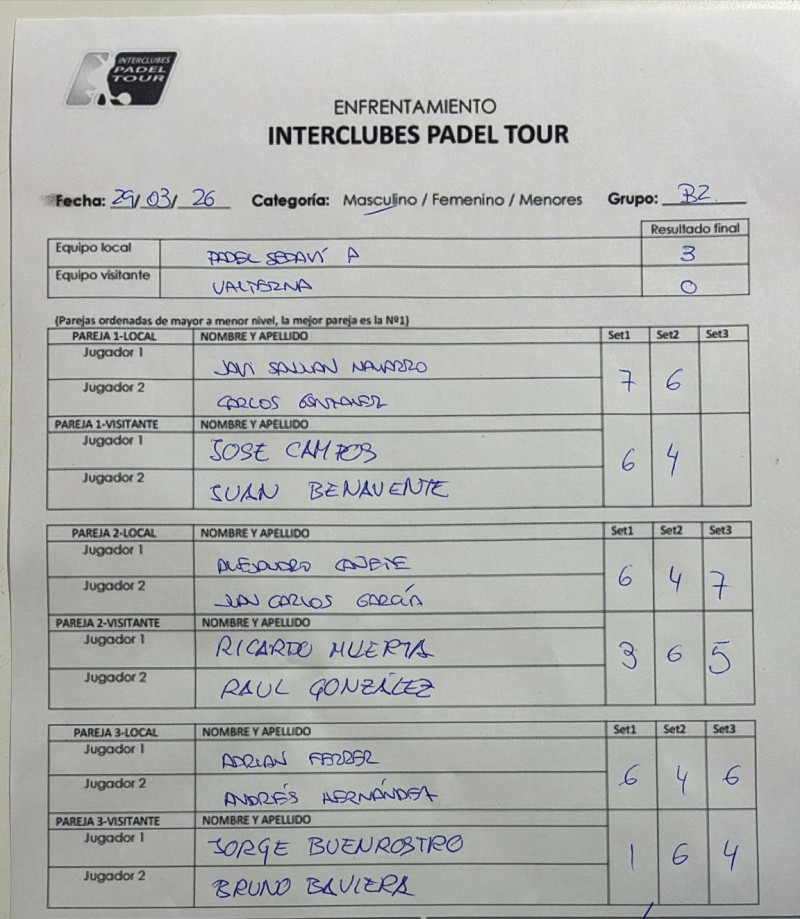 INTERCLUBES
PADEL
TOUR
ENFRENTAMIENTO
INTERCLUBES PADEL TOUR
Fecha: 29/03/26 Categoría: Masculino / Femenino / Menores Grupo: B2
Resultado final
Equipo local PADEL SEDAVÍ A 3
Equipo visitante VALTERNA 0
(Parejas ordenadas de mayor a menor nivel, la mejor pareja es la Nº1)
PAREJA 1-LOCAL NOMBRE Y APELLIDO Set1 Set2 Set3
Jugador 1 JAVI NAVARRO
7 6
Jugador 2 CARLOS
PAREJA 1-VISITANTE NOMBRE Y APELLIDO
Jugador 1 JOSE CAMPOS
6 4
Jugador 2 JUAN BENAVENTE
PAREJA 2-LOCAL NOMBRE Y APELLIDO Set1 Set2 Set3
Jugador 1 ALEJANDRO CAÑETE
6 4 7
Jugador 2 JUAN CARLOS GARCÍA
PAREJA 2-VISITANTE NOMBRE Y APELLIDO
Jugador 1 RICARDO HUERTA
3 6 5
Jugador 2 RAUL GONZÁLEZ
PAREJA 3-LOCAL NOMBRE Y APELLIDO Set1 Set2 Set3
Jugador 1 ADRIAN FERRER
6 4 6
Jugador 2 ANDRÉS HERNÁNDEZ
PAREJA 3-VISITANTE NOMBRE Y APELLIDO
Jugador 1 JORGE BUENROSTRO
1 6 4
Jugador 2 BRUNO BAVIERA